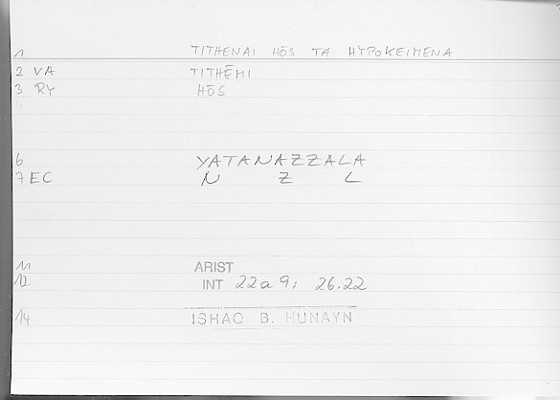 1 TITHENAI HŌS TA HYPOKEIMENA
2 VA TITHĒMI
3 RY HŌS
4
6 YATANAZZALA
7 EC N Z L
11 ARIST
12 INT 22a9; 26.22
14 ISHAQ B. HUNAYN